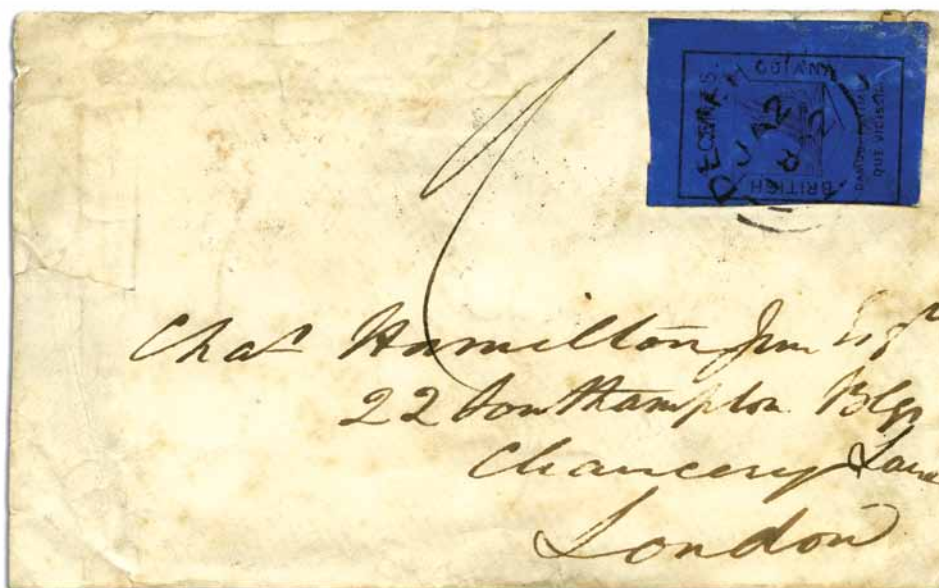 BRITISH
GUIANA.
DAMUS PETIMUS
QUE VICISSIM.
DE
JU 12
Chas Hamilton Jun Esqr
22 Southampton Blgs
Chancery Lane
London